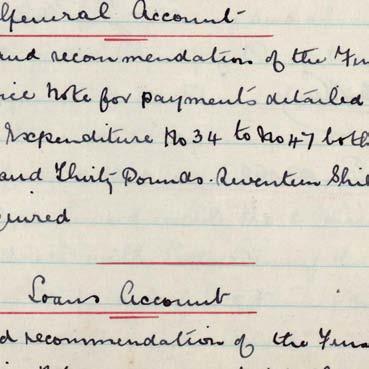 General Account
and recommendation of the Fin
nce Note for payments detailed
Expenditure No 34 to No 47 both
and Thirty Pounds. Seventeen Shil
quired
Loans Account
d recommendation of the Fina